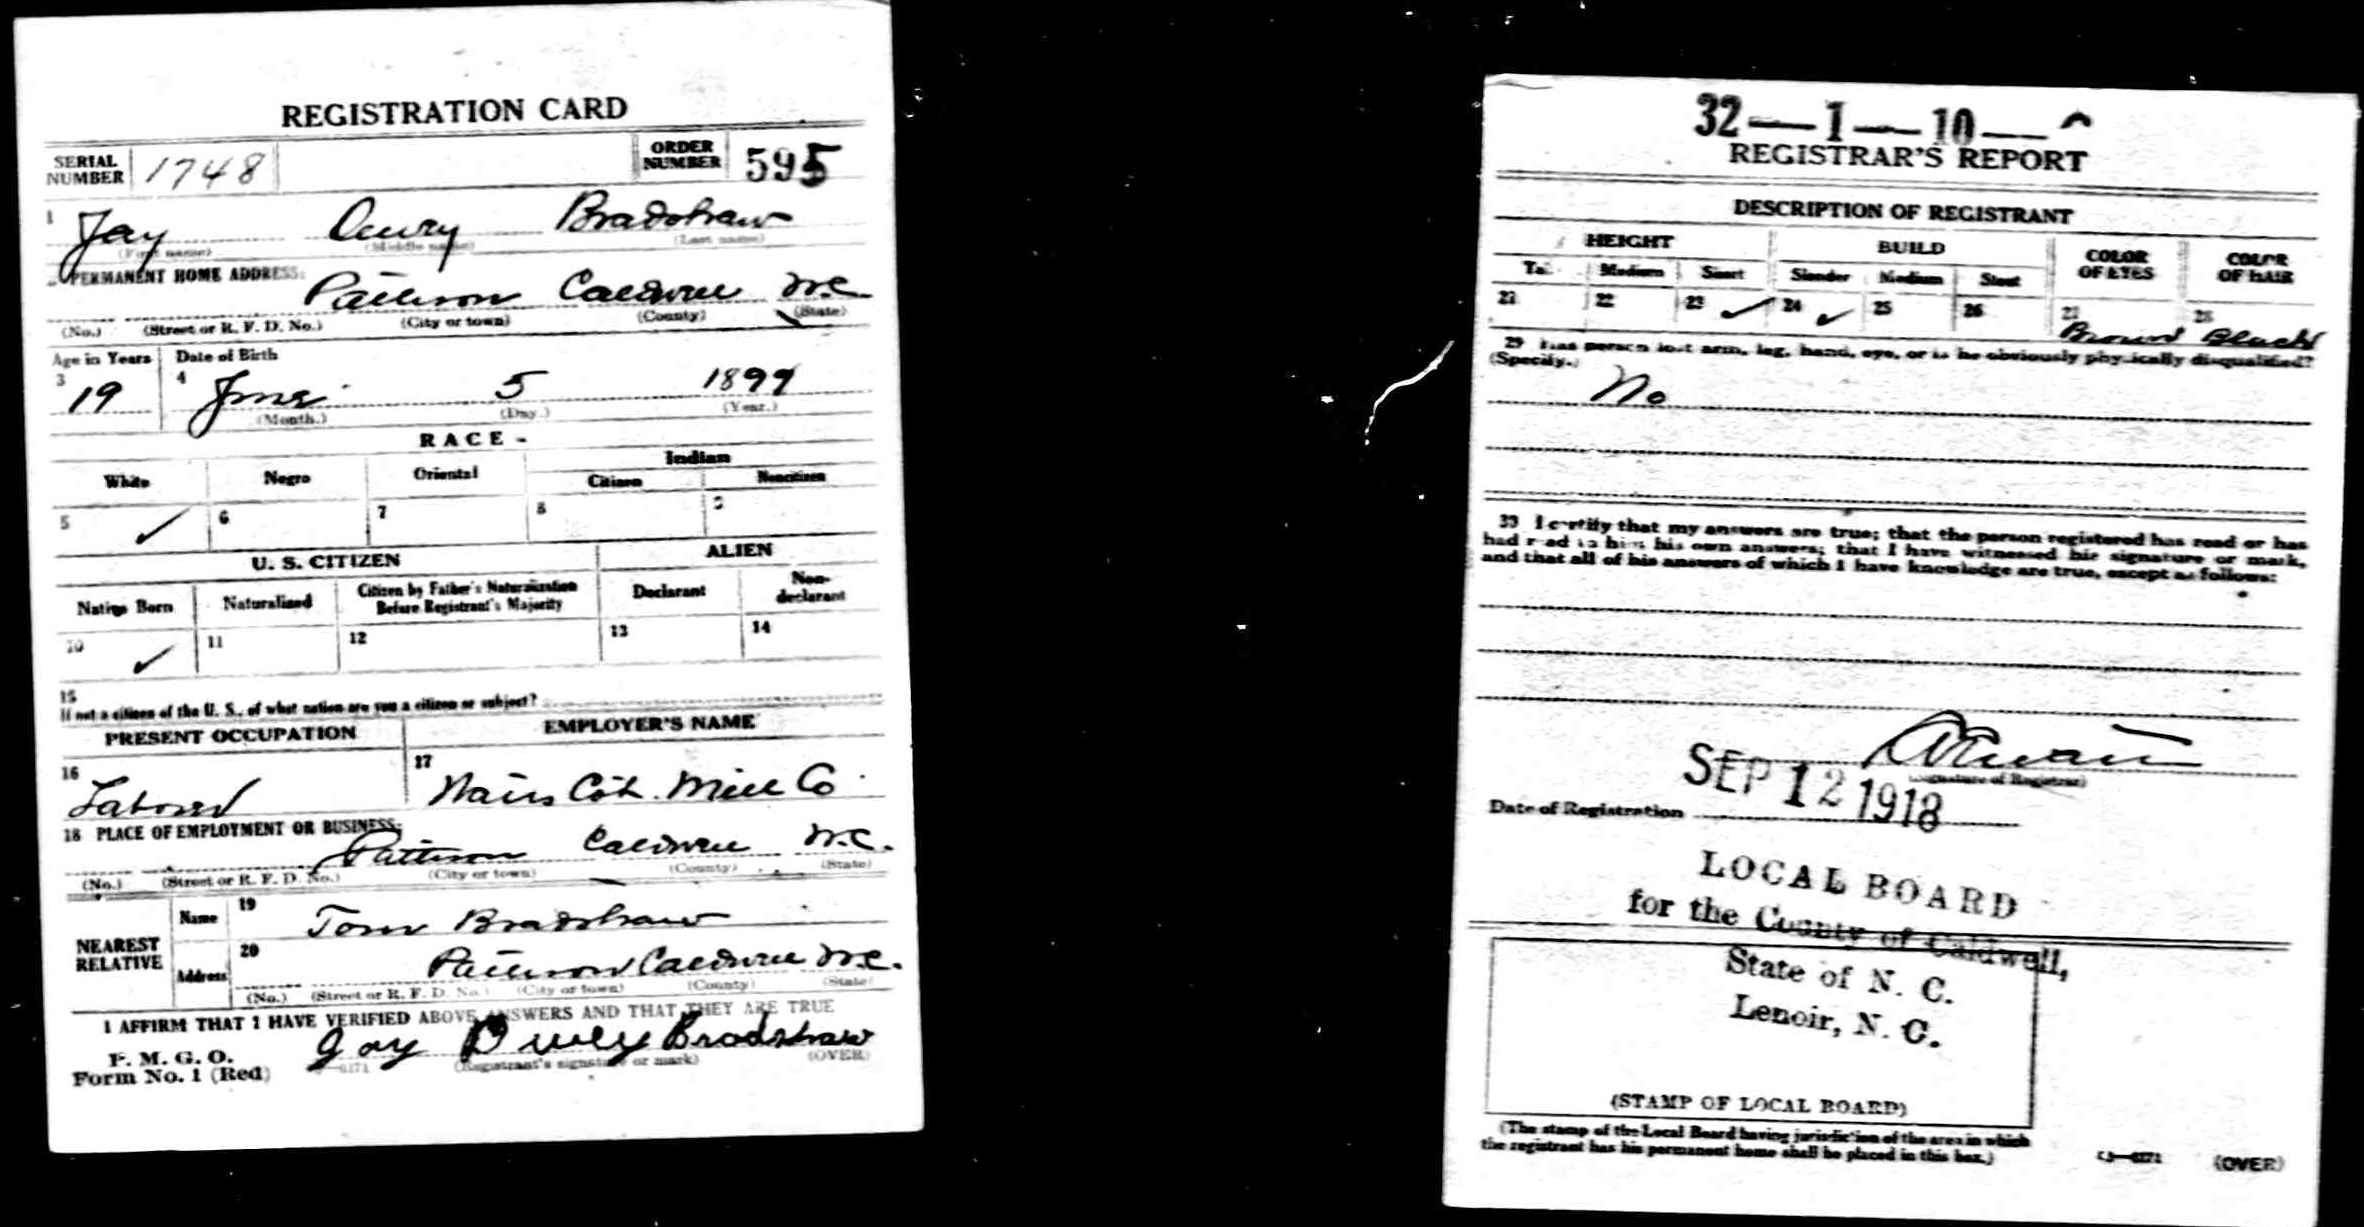 REGISTRATION CARD
SERIAL NUMBER 1748 ORDER NUMBER 595
1 Jay Dewey Bradshaw
(First name) (Middle name) (Last name)
PERMANENT HOME ADDRESS:
Patterson Caldwell N.C.
(No.) (Street or R. F. D. No.) (City or town) (County) (State)
Age in Years Date of Birth
3 19 4 June 5 1899
(Month.) (Day.) (Year.)
RACE
White Negro Oriental Indian
Citizen Noncitizen
5 ✓ 6 7 8 9
U. S. CITIZEN ALIEN
Native Born Naturalized Citizen by Father's Naturalization Before Registrant's Majority Declarant Non-declarant
10 ✓ 11 12 13 14
15
If not a citizen of the U. S., of what nation are you a citizen or subject?
PRESENT OCCUPATION EMPLOYER'S NAME
16 Laborer 17 Cot. Mill Co
18 PLACE OF EMPLOYMENT OR BUSINESS:
Patterson Caldwell N.C.
(No.) (Street or R. F. D. No.) (City or town) (County) (State)
NEAREST RELATIVE
Name 19 Tom Bradshaw
Address 20 Patterson Caldwell N.C.
(No.) (Street or R. F. D. No.) (City or town) (County) (State)
I AFFIRM THAT I HAVE VERIFIED ABOVE ANSWERS AND THAT THEY ARE TRUE
P. M. G. O.
Form No. 1 (Red) Jay Dewey Bradshaw
(Registrant's signature or mark) (OVER)
32—1—10—C
REGISTRAR'S REPORT
DESCRIPTION OF REGISTRANT
HEIGHT BUILD COLOR OF EYES COLOR OF HAIR
Tall Medium Short Slender Medium Stout
21 22 23 ✓ 24 ✓ 25 26 27 Brown 28 Black
29 Has person lost arm, leg, hand, eye, or is he obviously physically disqualified?
(Specify.)
No
30 I certify that my answers are true; that the person registered has read or has
had read to him his own answers; that I have witnessed his signature or mark,
and that all of his answers of which I have knowledge are true, except as follows:
(Signature of Registrar)
Date of Registration SEP 12 1918
LOCAL BOARD
for the County of Caldwell,
State of N. C.
Lenoir, N. C.
(STAMP OF LOCAL BOARD)
(The stamp of the Local Board having jurisdiction of the area in which
the registrant has his permanent home shall be placed in this box.)
(OVER)